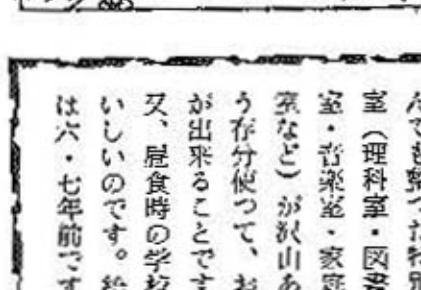 んでも整つた特別
室（理科室・図書
室・音楽室・家庭
室など）が沢山あ
う存分使つて、お
が出来ることです
又、昼食時の学校
いしいのです。給
は六・七年前です